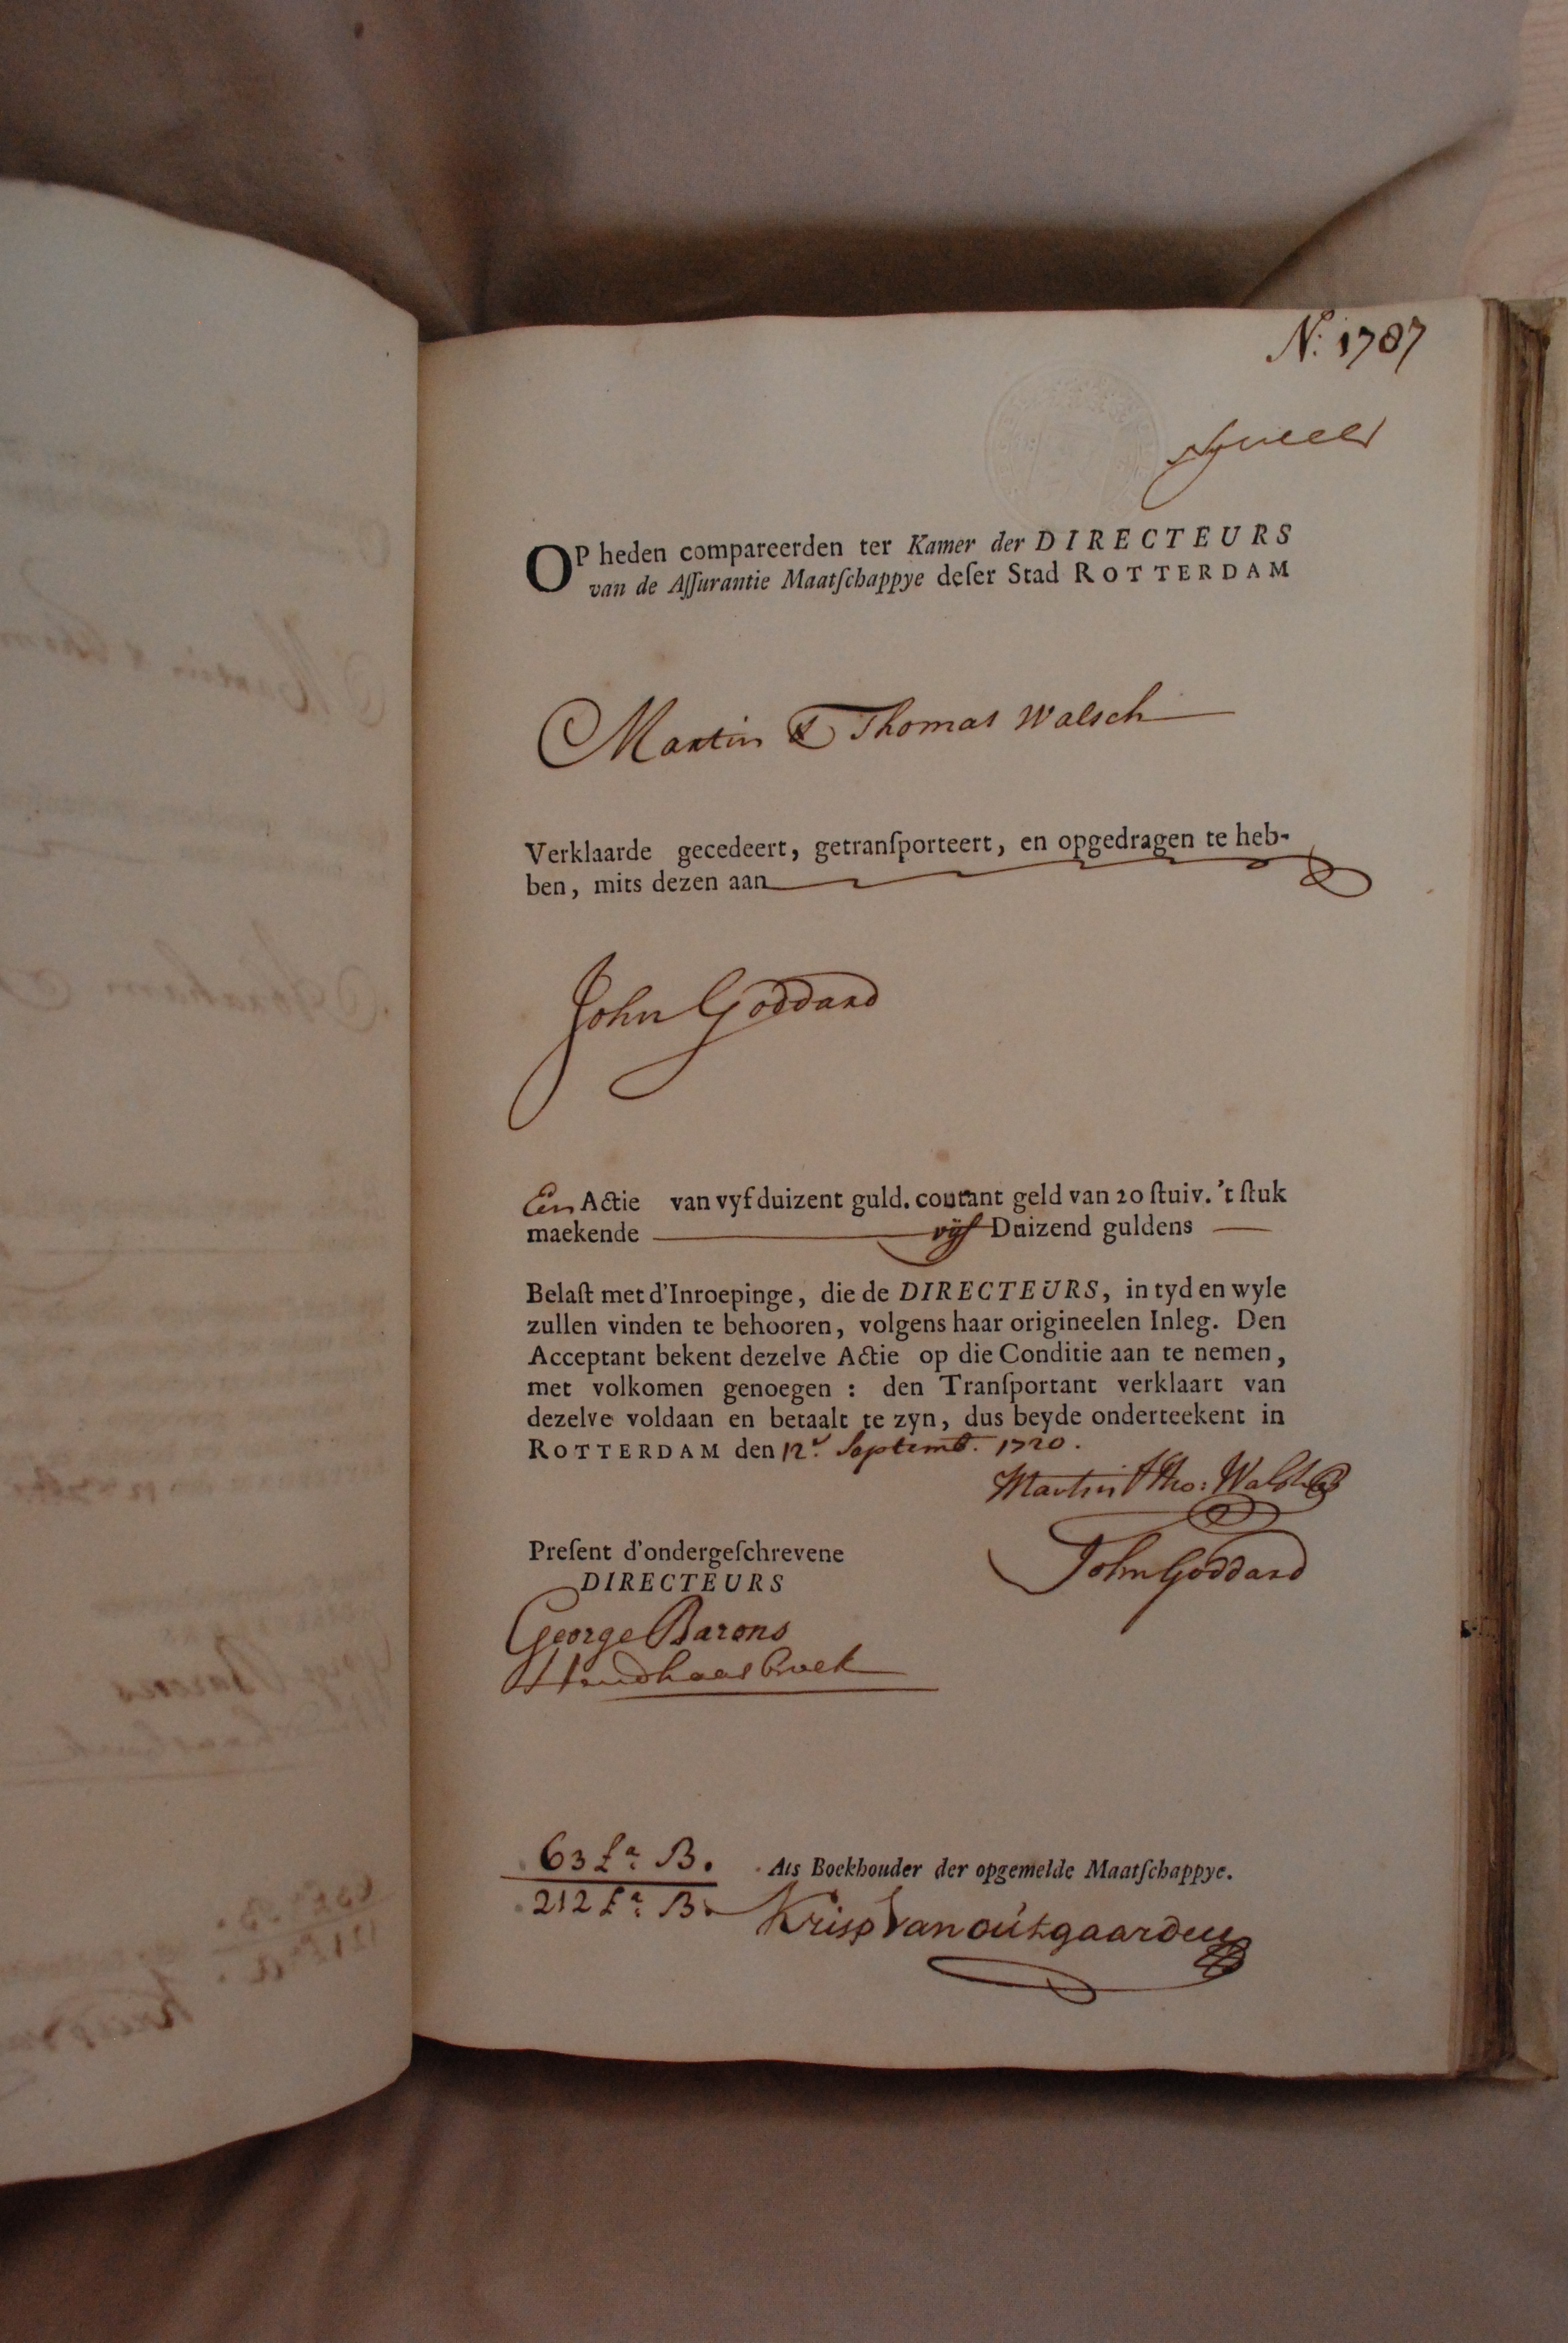 N: 1787
OP heden compareerden ter Kamer der DIRECTEURS
van de Aſſurantie Maatſchappye deſer Stad ROTTERDAM
Martin & Thomas Walsch
Verklaarde gecedeert, getranſporteert, en opgedragen te heb-
ben, mits dezen aan
John Goddard
Een Actie van vyf duizent guld. courant geld van 20 ſtuiv. 't ſtuk
maekende vijf Duizend guldens
Belaſt met d'Inroepinge, die de DIRECTEURS, in tyd en wyle
zullen vinden te behooren, volgens haar origineelen Inleg. Den
Acceptant bekent dezelve Actie op die Conditie aan te nemen,
met volkomen genoegen : den Tranſportant verklaart van
dezelve voldaan en betaalt te zyn, dus beyde onderteekent in
ROTTERDAM den 12.e Septemb. 1720.
Martin & Tho: Walsh
Preſent d'ondergeſchrevene
John Goddard
DIRECTEURS
George Barons
63 La. B.
Als Boekhouder der opgemelde Maatſchappye.
212 La. B.
Krisp van outgaarden